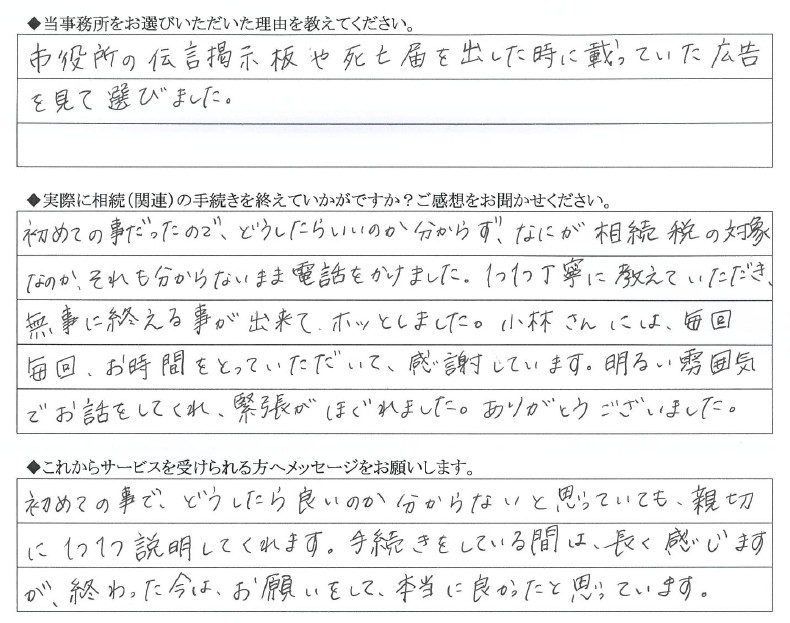 ◆当事務所をお選びいただいた理由を教えてください。
市役所の伝言掲示板や死亡届を出した時に載っていた広告
を見て選びました。
◆実際に相続(関連)の手続きを終えていかがですか？ご感想をお聞かせください。
初めての事だったので、どうしたらいいのか分からず、なにが相続税の対象
なのか、それも分からないまま電話をかけました。1つ1つ丁寧に教えていただき、
無事に終える事が出来て、ホッとしました。小林さんには、毎回
毎回、お時間をとっていただいて、感謝しています。明るい雰囲気
でお話をしてくれ、緊張がほぐれました。ありがとうございました。
◆これからサービスを受けられる方へメッセージをお願いします。
初めての事で、どうしたら良いのか分からないと思っていても、親切
に1つ1つ説明してくれます。手続きをしている間は、長く感じます
が、終わった今は、お願いをして、本当に良かったと思っています。